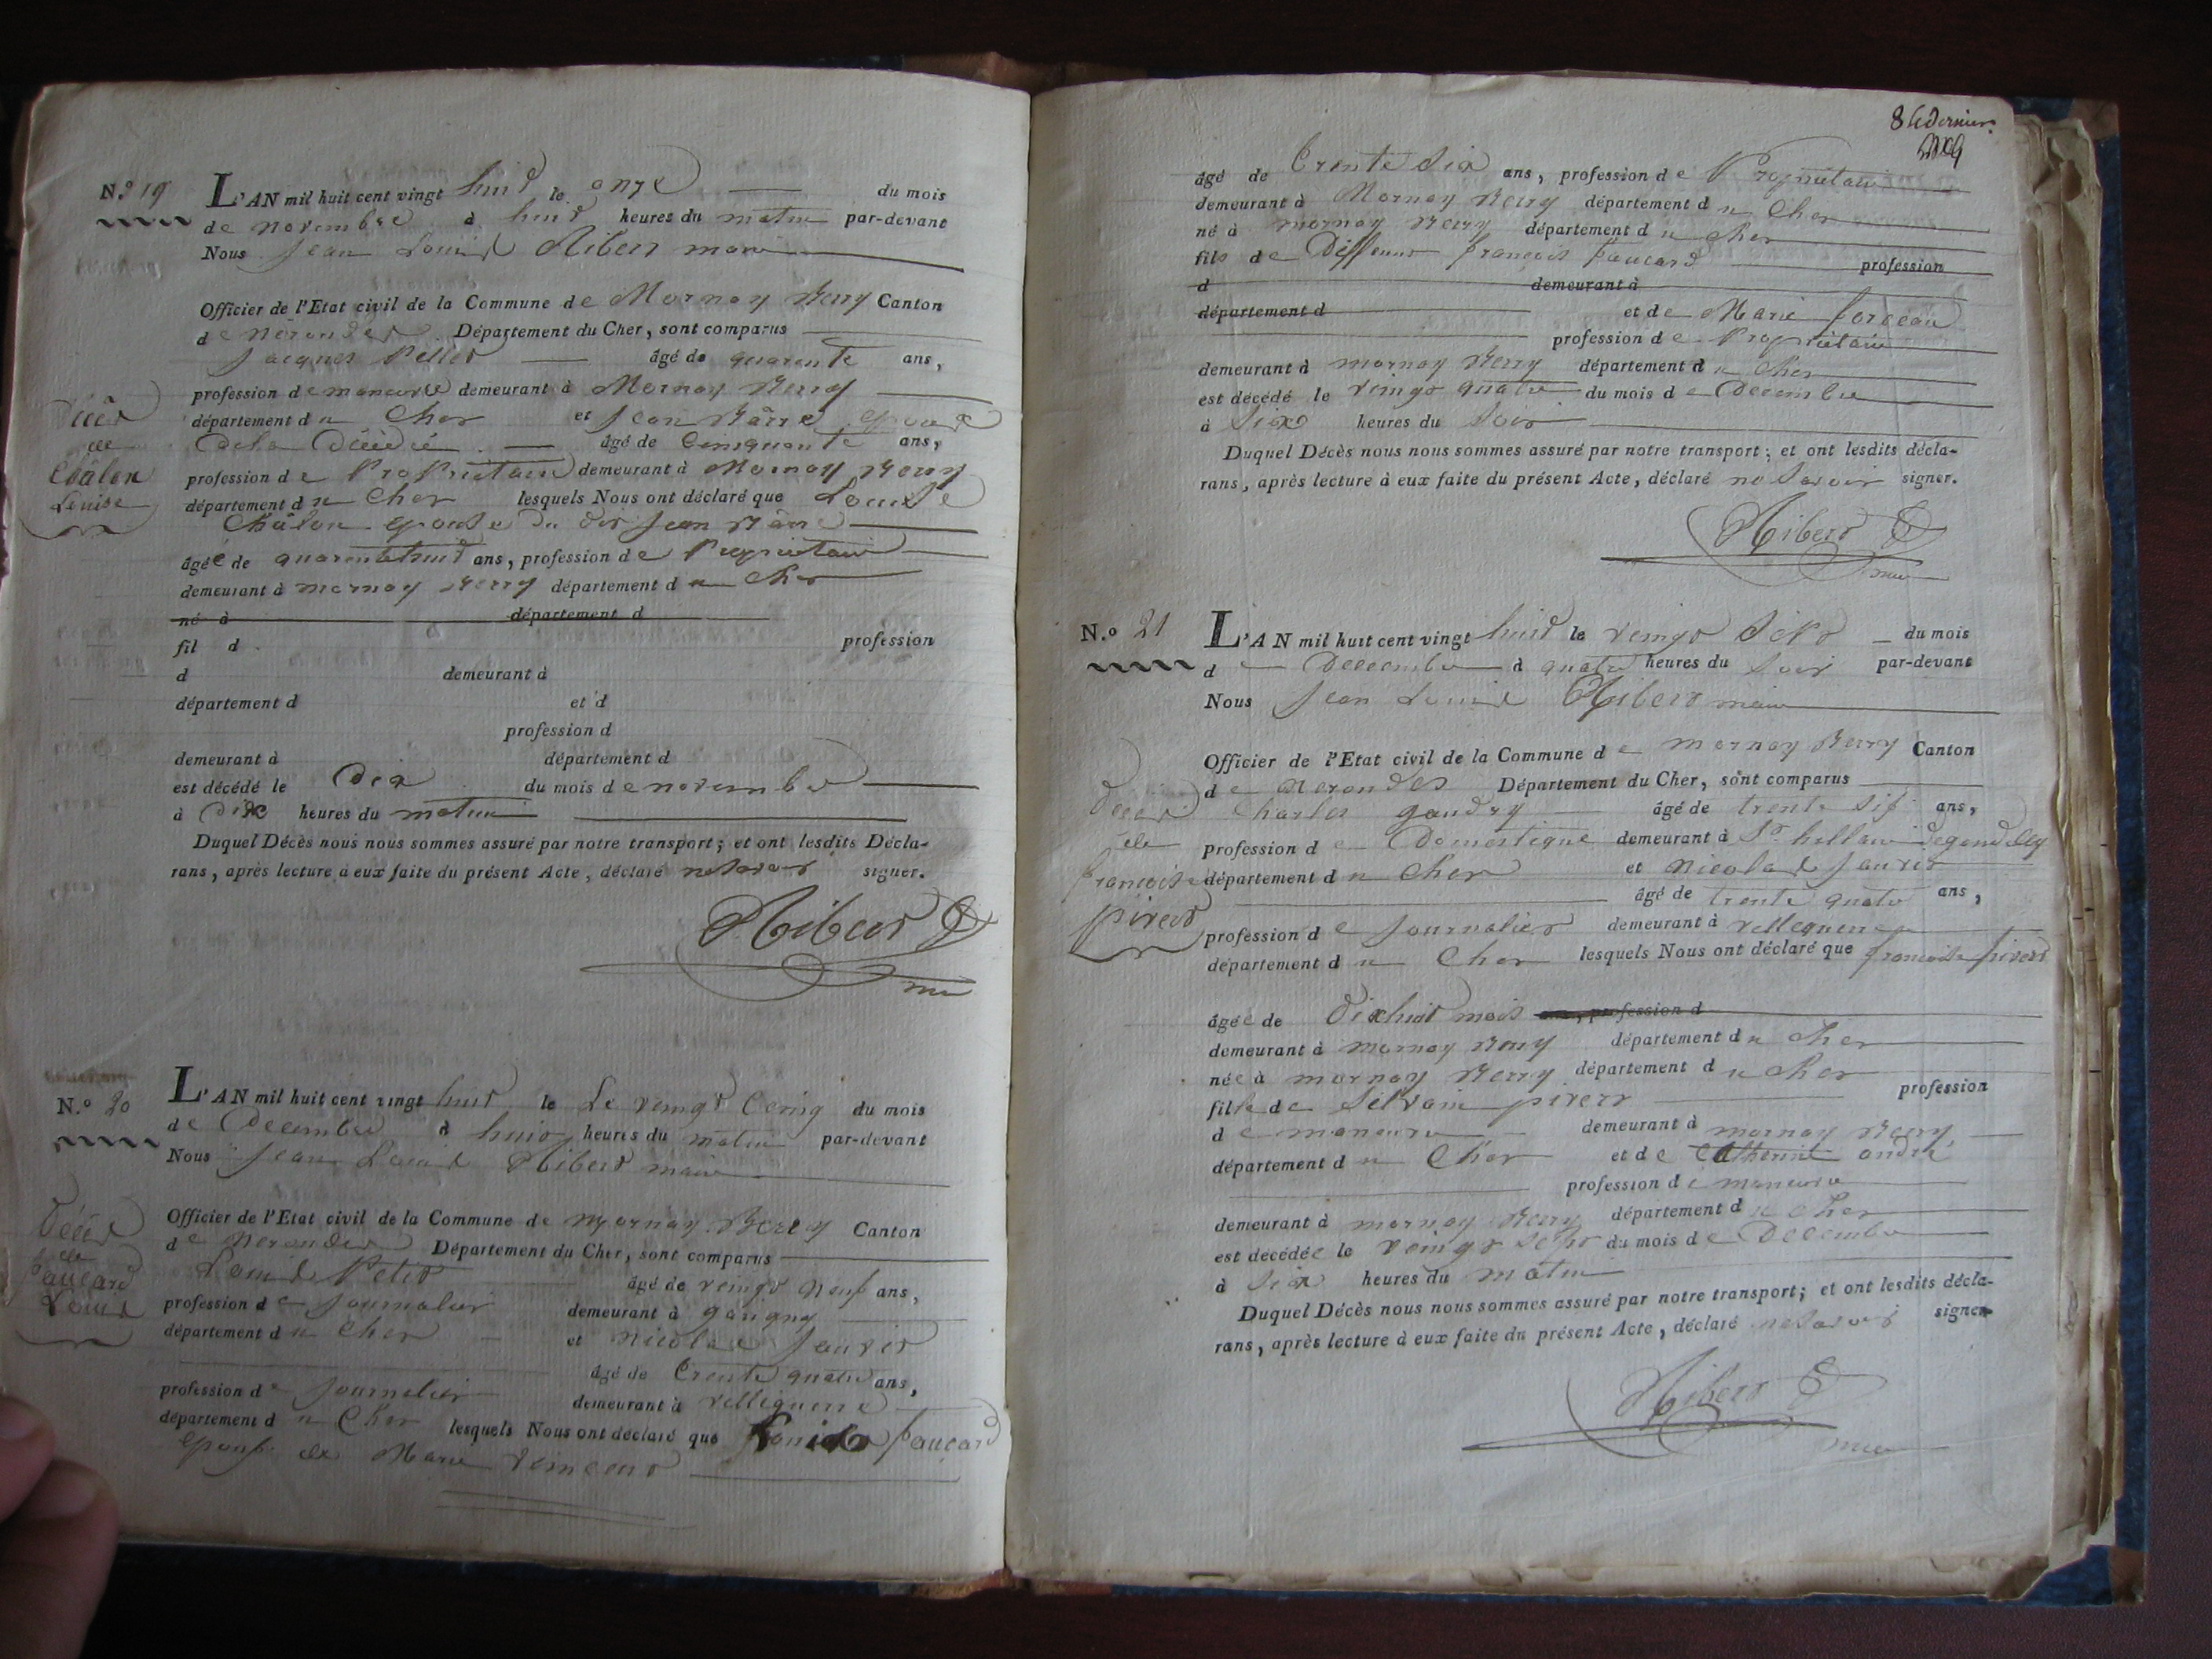 N.º 19
L'AN mil huit cent vingt huit le onze du mois
de novembre à huit heures du matin par-devant
Nous Jean Louis Ribert maire
Officier de l'Etat civil de la Commune de Mornay Berry Canton
de Nerondes Département du Cher, sont comparus
Jacques Pellet âgé de quarente ans,
profession de maneuvre demeurant à Mornay Berry
département du Cher et Jean Bârre epoux
de la Décédé âgé de Cinquante ans,
profession de Proprietaire demeurant à Mornay Berry
département du Cher lesquels Nous ont déclaré que Louise
Châlon epouse du dit Jean Bârre
âgée de quarentehuit ans, profession de Proprietaire
demeurant à mornay Berry département du Cher
né à département d
fil d profession
d demeurant à
département d et d
profession d
demeurant à département d
est décédé le Dix du mois de novembre
à Dix heures du matin
Duquel Décès nous nous sommes assuré par notre transport; et ont lesdits Décla-
rans, après lecture à eux faite du présent Acte, déclaré ne savoir signer.
Ribert
Décès
de
Châlon
Louise
N.º 20
L'AN mil huit cent vingt huit le Le vingt Cinq du mois
de Decembre à huit heures du matin par-devant
Nous Jean Louis Ribert maire
Officier de l'Etat civil de la Commune de Mornay Berry Canton
de Nerondes Département du Cher, sont comparus
Louis Petit âgé de vingt neuf ans,
profession de Journalier demeurant à garigny
département du Cher et nicolas Sautis
âgé de trente quatre ans,
profession de Journalier demeurant à villequiere
département du Cher lesquels Nous ont déclaré que paucard
epoux de Marie
Décès
de
paucard
Louis
8 et dernier
âgé de trente six ans, profession de Proprietaire
demeurant à Mornay Berry département du Cher
né à mornay Berry département du Cher
fils de Deffunt françois paucard profession
d demeurant à
département d et de Marie
profession de Proprietaire
demeurant à mornay Berry département du Cher
est décédé le vingt quatre du mois de Decembre
à Six heures du Soir
Duquel Décès nous nous sommes assuré par notre transport; et ont lesdits décla-
rans, après lecture à eux faite du présent Acte, déclaré ne Savoir signer.
Ribert
N.º 21
L'AN mil huit cent vingt huit le vingt Sept du mois
de Decembre à quatre heures du Soir par-devant
Nous Jean Louis Ribert maire
Officier de l'Etat civil de la Commune de mornay Berry Canton
de Nerondes Département du Cher, sont comparus
Charles gaudry âgé de trente six ans,
profession de Domestique demeurant à St hillaire degondilly
département du Cher et nicolas Sautis
âgé de trente quatre ans,
profession de Journalier demeurant à villequiere
département du Cher lesquels Nous ont déclaré que francoise pivert
âgée de Dixhuit mois ans, profession d
demeurant à mornay Berry département du Cher
née à mornay Berry département du Cher
fille de Silvain pivert profession
de maneuvre demeurant à mornay Berry
département du Cher et de Catherine andre
profession de maneuvre
demeurant à mornay Berry département du Cher
est décédée le vingt sept du mois de Decembre
à Six heures du matin
Duquel Décès nous nous sommes assuré par notre transport; et ont lesdits décla-
rans, après lecture à eux faite du présent Acte, déclaré ne savoir signer
Ribert
Décès
de
francoise
pivert